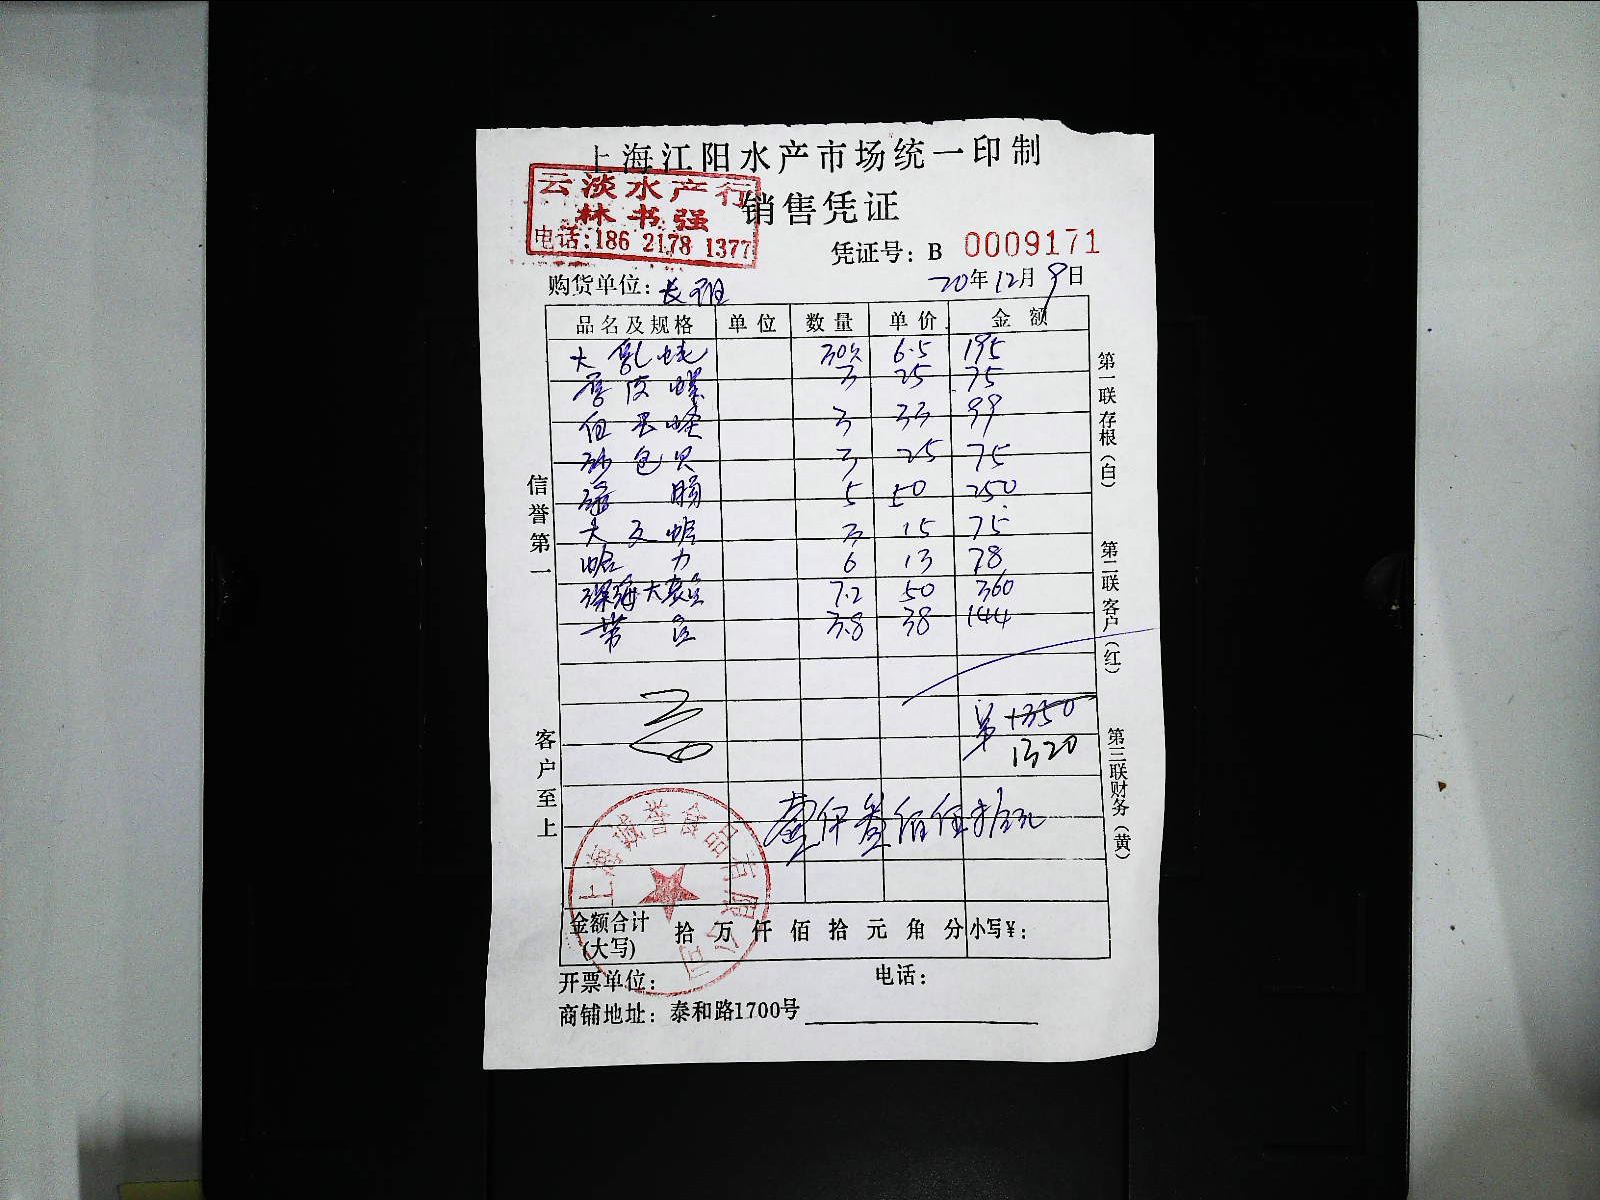 上海江阳水产市场统一印制
云淡水产行
林书强
电话:186 2178 1377
销售凭证
凭证号：B 0009171
购货单位：长
20年12月9日
品名及规格 单位 数量 单价 金额
大 30 6.5 195
皮螺 3 25 75
3 33 99
包贝 3 25 75
海肠 5 50 250
大 3 15 75
蛤 6 13 78
深海大 7.2 50 360
带 3.8 38 144
1350
1320
壹仟叁佰伍拾元
信誉第一
客户至上
第一联存根（白）
第二联客户（红）
第三联财务（黄）
上海诚誉食品有限公司
金额合计(大写) 拾 万 仟 佰 拾 元 角 分 小写¥：
开票单位： 电话：
商铺地址：泰和路1700号